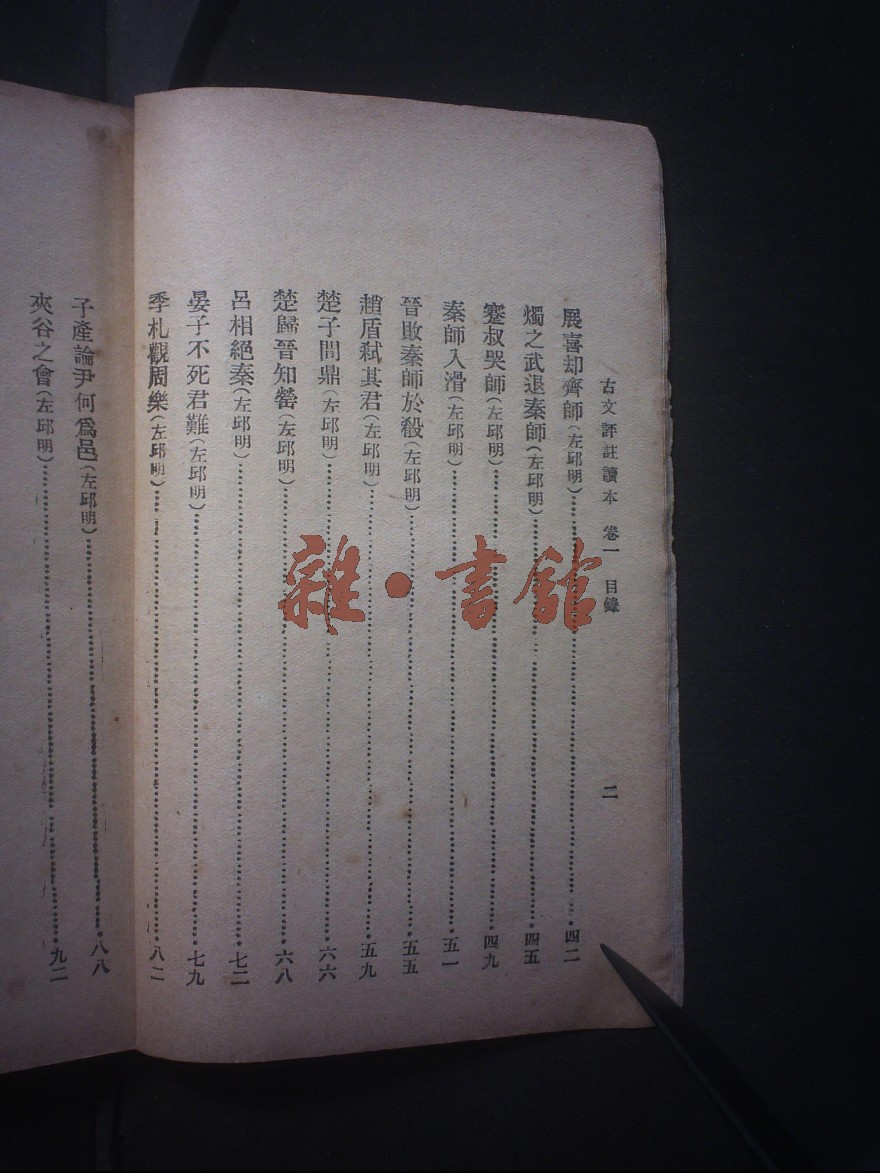 古文評註讀本 卷一 目錄 二
展喜却齊師(左邱明)四二
燭之武退秦師(左邱明)四五
蹇叔哭師(左邱明)四九
秦師入滑(左邱明)五一
晉敗秦師於殽(左邱明)五五
趙盾弑其君(左邱明)五九
楚子問鼎(左邱明)六六
楚歸晉知罃(左邱明)六八
呂相絕秦(左邱明)七二
晏子不死君難(左邱明)七九
季札觀周樂(左邱明)八二
子產論尹何爲邑(左邱明)八八
夾谷之會(左邱明)九二
雜·書館